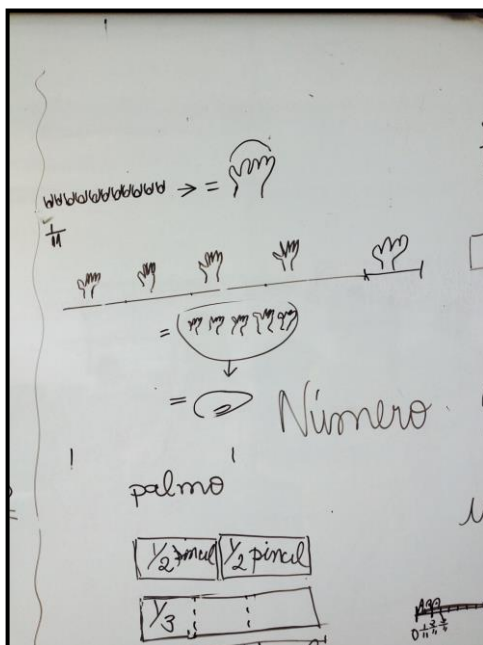 → =
1/11
=
= Número
palmo
1/2 pincel 1/2 pincel
1/3